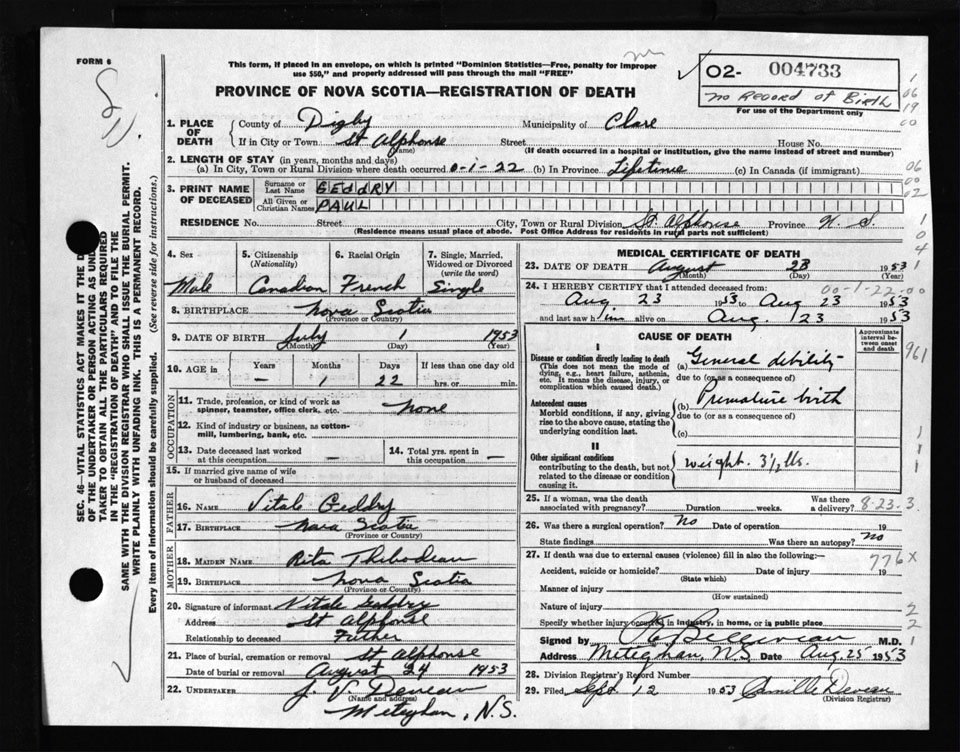 FORM 6
This form, if placed in an envelope, on which is printed "Dominion Statistics—Free, penalty for improper
use $50," and properly addressed will pass through the mail "FREE"
O2- 004733
No Record of Birth
For use of the Department only
PROVINCE OF NOVA SCOTIA—REGISTRATION OF DEATH
1. PLACE OF DEATH
County of Digby Municipality of Clare
If in City or Town St Alphonse Street House No.
(Name) (If death occurred in a hospital or institution, give the name instead of street and number)
2. LENGTH OF STAY (in years, months and days)
(a) In City, Town or Rural Division where death occurred 0-1-22 (b) In Province Lifetime (c) In Canada (if immigrant)
3. PRINT NAME OF DECEASED
Surname or Last Name GEDDRY
All Given or Christian Names PAUL
RESIDENCE No. Street City, Town or Rural Division St Alphonse Province N. S.
(Residence means usual place of abode. Post Office Address for residents in rural parts not sufficient)
4. Sex
Male
5. Citizenship
(Nationality)
Canadian
6. Racial Origin
French
7. Single, Married,
Widowed or Divorced
(write the word)
Single
8. BIRTHPLACE Nova Scotia
(Province or Country)
9. DATE OF BIRTH July 1 1953
(Month) (Day) (Year)
10. AGE in
Years Months Days If less than one day old
— 1 22 hrs. or min.
OCCUPATION
11. Trade, profession, or kind of work as
spinner, teamster, office clerk, etc. none
12. Kind of industry or business, as cotton-
mill, lumbering, bank, etc.
13. Date deceased last worked
at this occupation —
14. Total yrs. spent in
this occupation —
15. If married give name of wife
or husband of deceased
FATHER
16. Name Vitale Geddry
17. Birthplace Nova Scotia
(Province or Country)
MOTHER
18. Maiden Name Rita Thebodeau
19. Birthplace Nova Scotia
(Province or Country)
20. Signature of informant Vitale Geddry
Address St Alphonse
Relationship to deceased Father
21. Place of burial, cremation or removal St Alphonse
Date of burial or removal August 24 1953
22. Undertaker J. V. Deveau
(Name and address)
Meteghan, N.S.
MEDICAL CERTIFICATE OF DEATH
23. DATE OF DEATH August 23 1953
(Month) (Day) (Year)
24. I HEREBY CERTIFY that I attended deceased from:
00-1-22-00
Aug 23 1953 to Aug 23 1953
and last saw him alive on Aug. 23 1953
CAUSE OF DEATH
Approximate interval between onset and death
I
Disease or condition directly leading to death
(This does not mean the mode of
dying, e.g., heart failure, asthenia,
etc. It means the disease, injury, or
complication which caused death.)
(a) General debility
due to (or as a consequence of)
Antecedent causes
Morbid conditions, if any, giving
rise to the above cause, stating the
underlying condition last.
(b) Premature birth
due to (or as a consequence of)
(c)
II
Other significant conditions
contributing to the death, but not
related to the disease or condition
causing it.
weight. 3½ lbs.
25. If a woman, was the death
associated with pregnancy? Duration weeks.
Was there
a delivery? 8-23-3
26. Was there a surgical operation? No Date of operation 19
State findings Was there an autopsy? No
27. If death was due to external causes (violence) fill in also the following:—
776 x
Accident, suicide or homicide? Date of injury 19
(State which)
Manner of injury
(How sustained)
Nature of injury
Specify whether injury occurred in industry, in home, or in public place
Signed by Belliveau M.D.
Address Meteghan, N.S. Date Aug. 25 1953
28. Division Registrar's Record Number
29. Filed Sept 12 1953 Camille Deveau
(Division Registrar)
SEC. 46—VITAL STATISTICS ACT MAKES IT THE D
OF THE UNDERTAKER OR PERSON ACTING AS UND
TAKER TO OBTAIN ALL THE PARTICULARS REQUIRED
IN THE "REGISTRATION OF DEATH" AND TO FILE THE
SAME WITH THE DIVISION REGISTRAR WHO SHALL ISSUE THE BURIAL PERMIT.
WRITE PLAINLY WITH UNFADING INK. THIS IS A PERMANENT RECORD.
Every item of information should be carefully supplied. (See reverse side for instructions.)
1
06
19
00
06
00
02
1
0
4
1
961
1
1
1
2
2
1